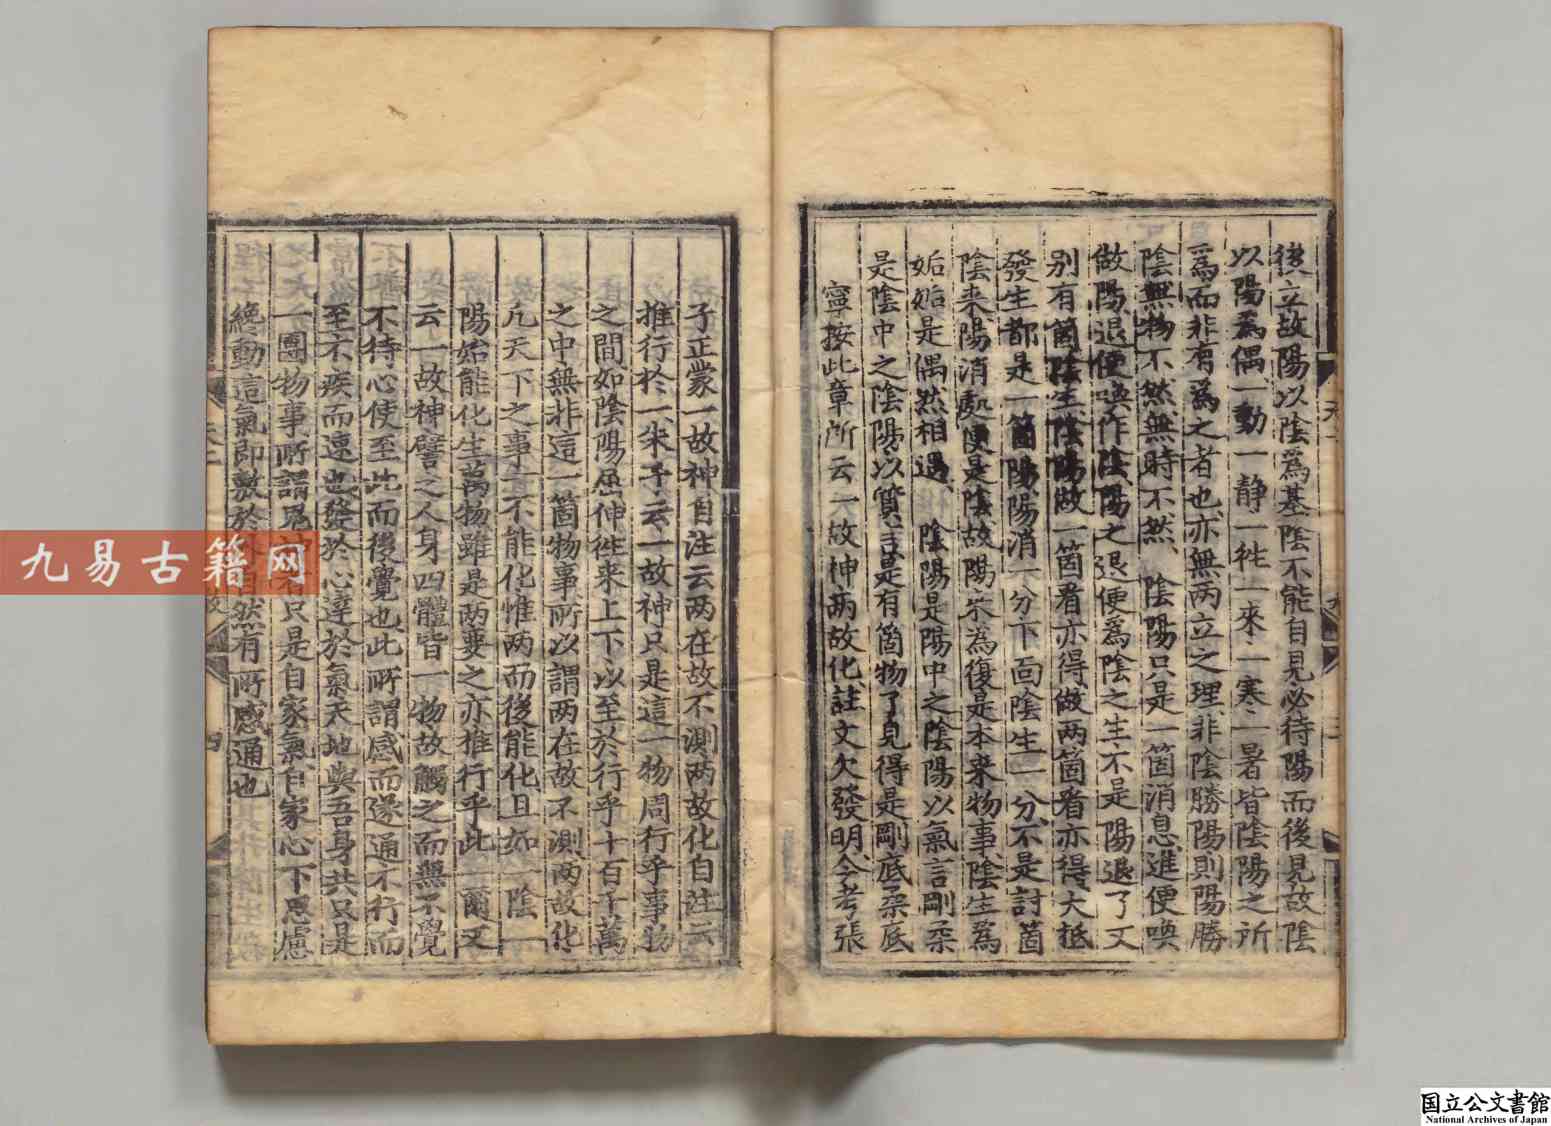 後立故陽以陰爲基陰不能自見必待陽而後見故陰
以陽爲偶一動一静一徃一來一寒一暑皆陰陽之所
爲而非有爲之者也亦無两立之理非陰勝陽則陽勝
陰無物不然無時不然 陰陽只是一箇消息進便喚
做陽退便喚作陰陽之退便爲陰之生不是陽退了又
别有箇陰生陰陽做一箇看亦得做两箇看亦得大抵
發生都是一箇陽陽消一分下面陰生一分不是討箇
陰来陽消處便是陰故陽来為復是本来物事陰生為
姤姤是偶然相遇 陰陽是陽中之陰陽以氣言剛柔
是陰中之陰陽以質言是有箇物了見得是剛底柔底
寧按此章所云一故神两故化註文欠發明今考張
子正蒙一故神自注云两在故不測两故化自註云
推行於一朱子云一故神只是這一物周行乎事物
之間如陰陽屈伸徃來上下以至於行乎十百千萬
之中無非這一箇物事所以謂两在故不測两故化
凡天下之事一不能化惟两而後能化且如一陰一
陽始能化生萬物雖是两要之亦推行乎此一爾又
云一故神譬之人身四體皆一物故觸之而無不覺
不待心使至此而後覺也此所謂感而遂通不行而
至不疾而速也發於心達於氣天地與吾身共只是
一團物事所謂鬼神者只是自家氣自家心下思慮
纔動這氣即敷於自然有所感通也
九易古籍网
国立公文書館
National Archives of Japan